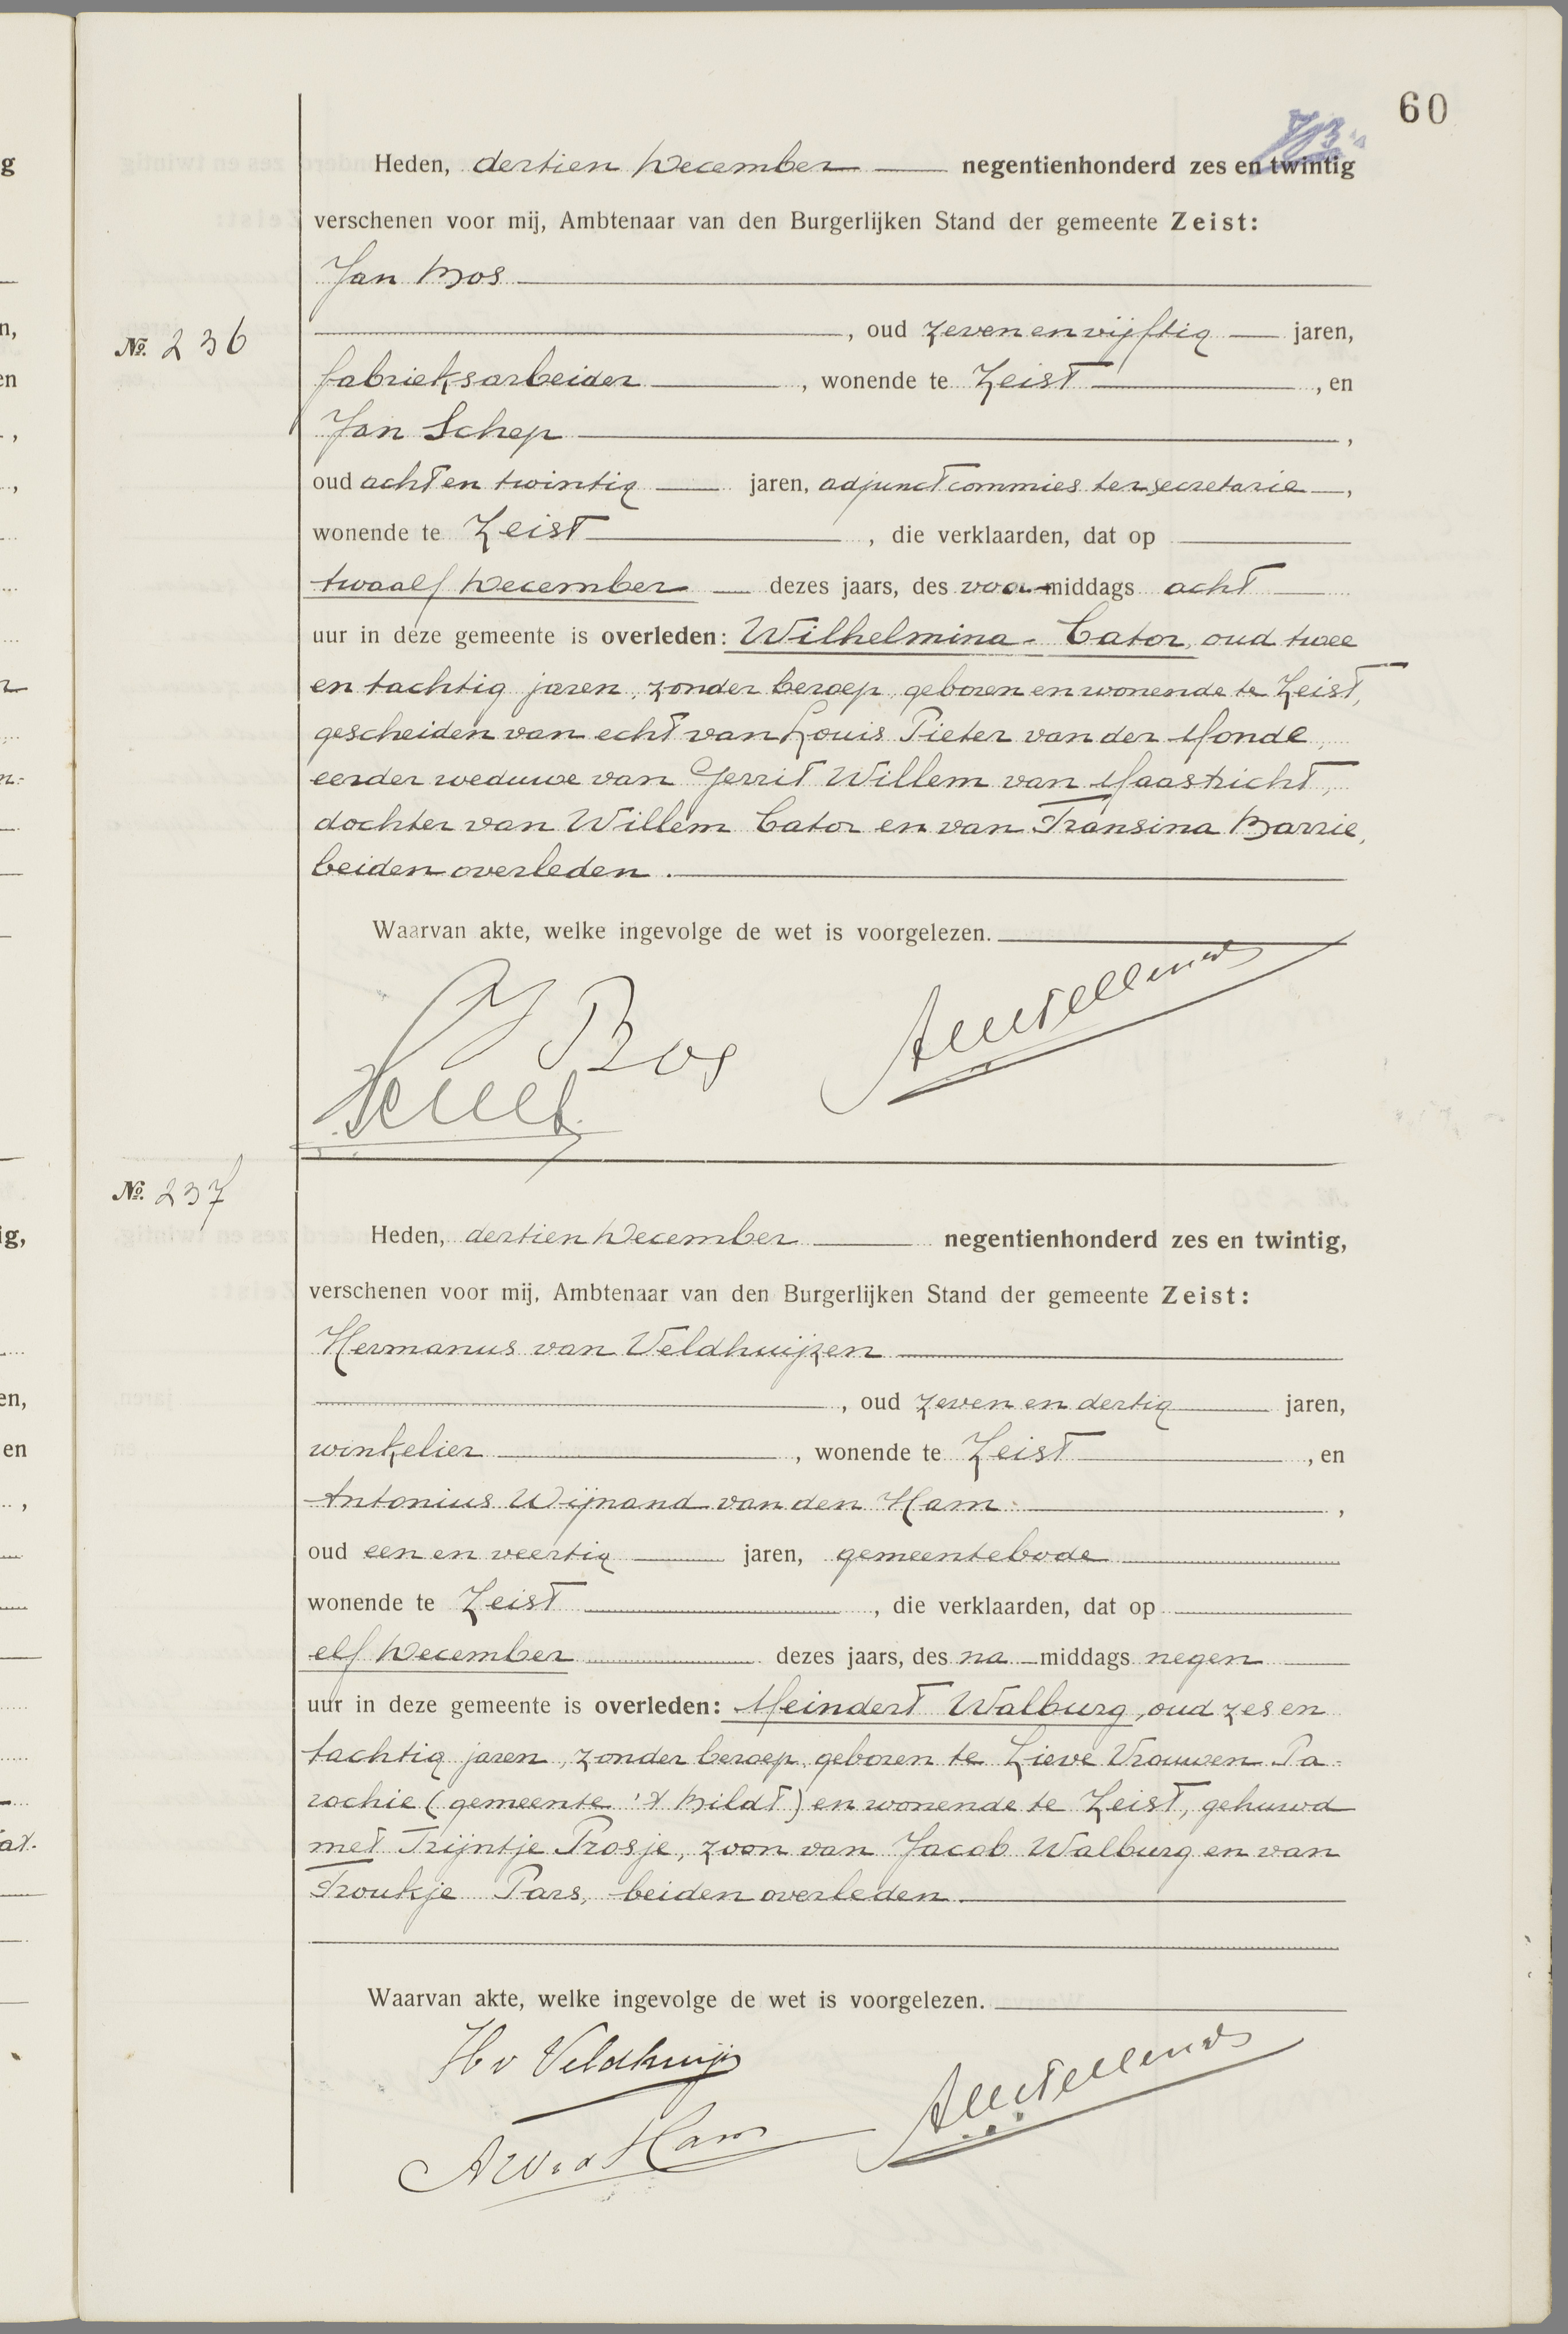 60
Heden, dertien December negentienhonderd zes en twintig
verschenen voor mij, Ambtenaar van den Burgerlijken Stand der gemeente Zeist:
Jan Bos
, oud zeven en vijftig jaren,
No. 236
fabrieksarbeider, wonende te Zeist, en
Jan Schep,
oud acht en twintig jaren, adjunct commies ter secretarie,
wonende te Zeist, die verklaarden, dat op
twaalf December dezes jaars, des voor-middags acht
uur in deze gemeente is overleden: Wilhelmina Cator, oud twee
en tachtig jaren, zonder beroep, geboren en wonende te Zeist,
gescheiden van echt van Louis Pieter van der Monde,
eerder weduwe van Gerrit Willem van Maastricht,
dochter van Willem Cator en van Fransina Barrie,
beiden overleden.
Waarvan akte, welke ingevolge de wet is voorgelezen.
J Bos
No. 237
Heden, dertien December negentienhonderd zes en twintig,
verschenen voor mij, Ambtenaar van den Burgerlijken Stand der gemeente Zeist:
Hermanus van Veldhuijzen
, oud zeven en dertig jaren,
winkelier, wonende te Zeist, en
Antonius Wijnand van den Ham,
oud een en veertig jaren, gemeentebode
wonende te Zeist, die verklaarden, dat op
elf December dezes jaars, des na middags negen
uur in deze gemeente is overleden: Meindert Walburg, oud zes en
tachtig jaren, zonder beroep, geboren te Lieve Vrouwen Pa-
rochie (gemeente 't Bildt) en wonende te Zeist, gehuwd
met Trijntje Prosje, zoon van Jacob Walburg en van
Froukje Pars, beiden overleden.
Waarvan akte, welke ingevolge de wet is voorgelezen.
H v Veldhuijz
A W v d Ham